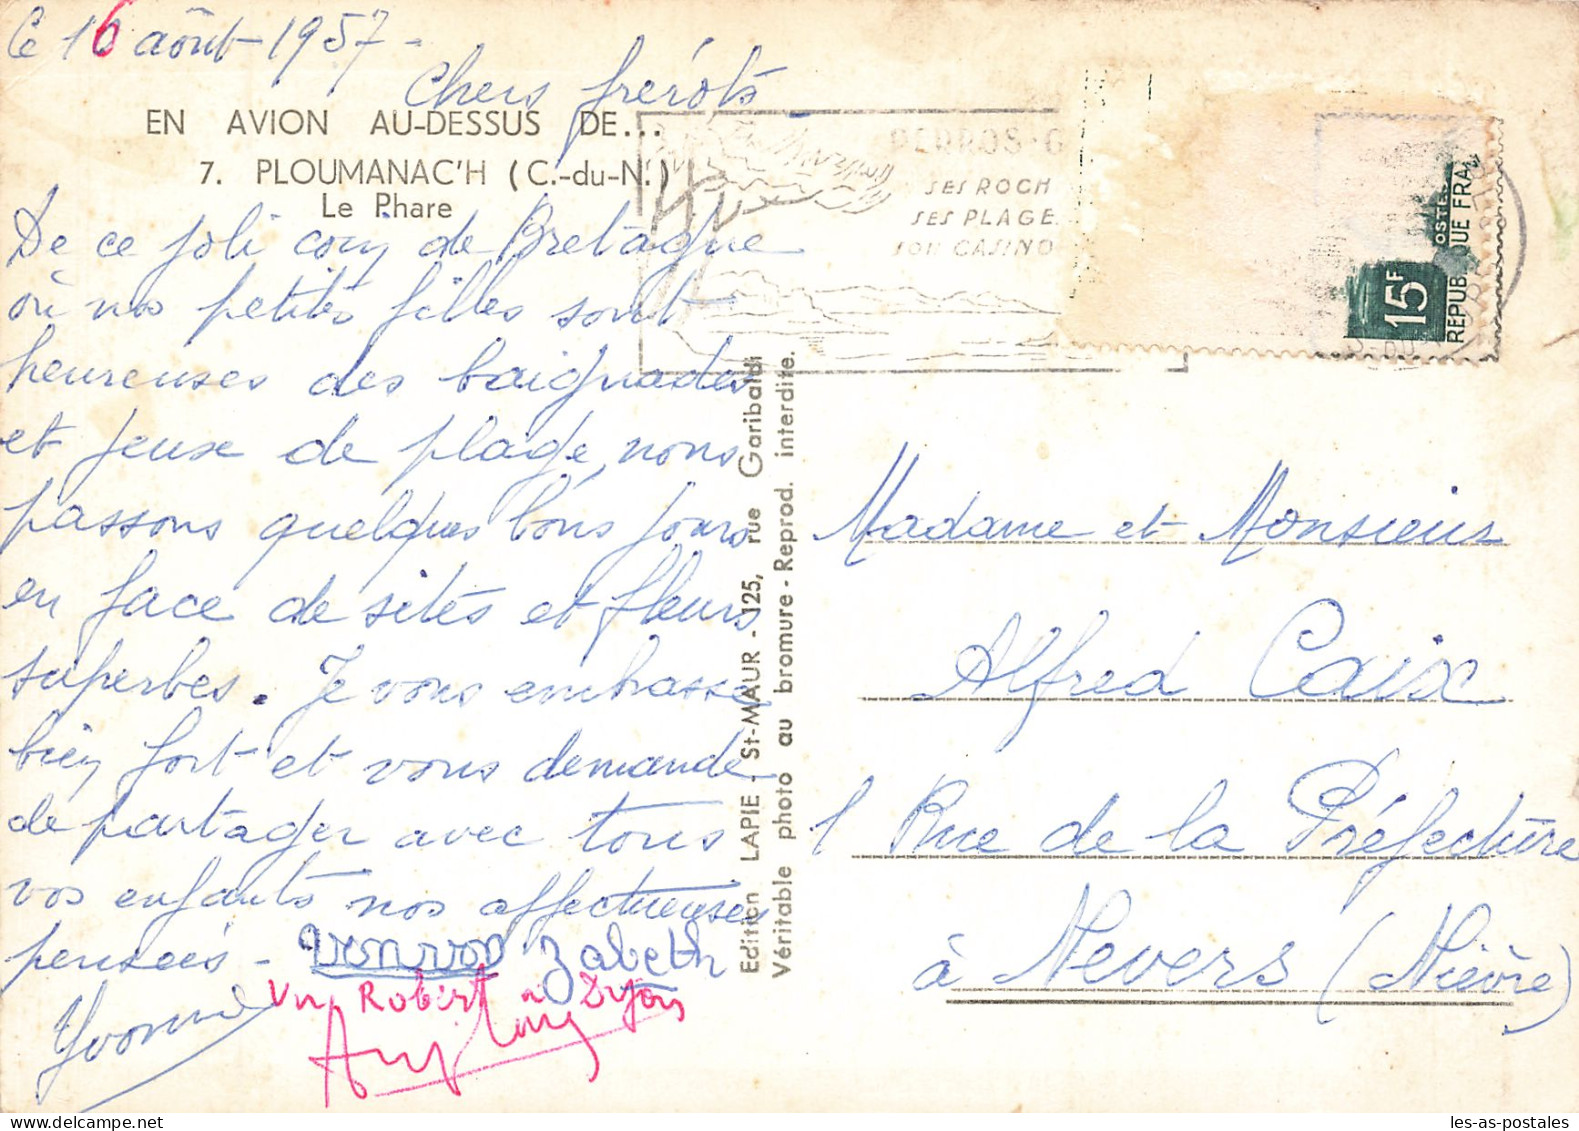 Ce 16 août 1957 -
Chers frérots
EN AVION AU-DESSUS DE...
7. PLOUMANAC'H (C.-du-N.)
Le Phare
De ce joli coin de Bretagne
où nos petites filles sont
heureuses des baignades
et jeux de plage, nous
passons quelques bons jours
en face de sites et fleurs
superbes. Je vous embrasse
bien fort et vous demande
de partager avec tous
vos enfants nos affectueuses
pensées -
Vonvon Zabeth
Yvonne
Vu Robert à Dijon
Edition LAPIE - St-MAUR - 125, rue Garibaldi
Véritable photo au bromure - Reprod. interdite.
PERROS-G
SES ROCH
SES PLAGE
SON CASINO
15F
POSTES
REPUBLIQUE FRA
Madame et Monsieur
Alfred Caix
1 Rue de la Préfecture
à Nevers (Nièvre)
les-as-postales